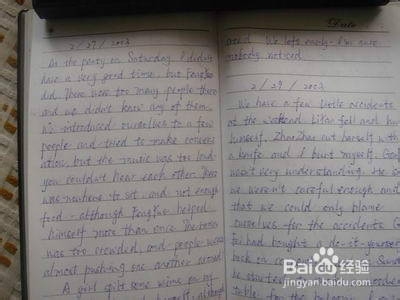 2/27/2003
At the party on Saturday I didn't
have a very good time, but FangFao
did. There were too many people there
and we didn't know any of them.
We introduced ourselves to a few
people and tried to make conver-
ation, but the music was too loud
you couldn't hear each other. There
was nowhere to sit, and not enough
food - although FangFao helped
himself more than once. The room
was too crowded, and people were
almost pushing one another around.
A girl spilt some wine on my
Date
We left early - I'm sure
nobody noticed.
2/29/2003
We have a few little accidents
at the weekend. Lifan fell and hurt
himself. ZhaoZhao cut herself with
a knife and I burt myself.
wasn't very understanding. He
we weren't careful enough and
that we could only plame
ourselves for the accidents.
had bought a do-it-yourself
book in
he started
table for the
Baidu 百度经验
jingyan.baidu.com